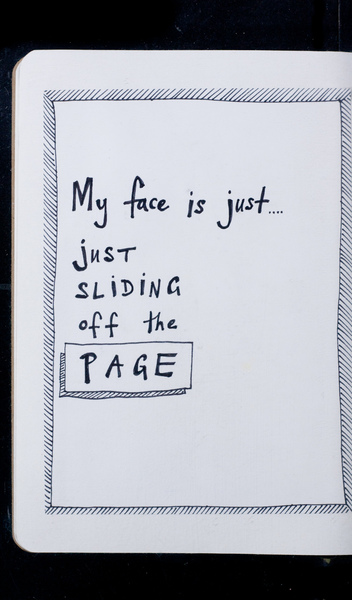 My face is just....
just
SLiDiNG
off the
PAGE